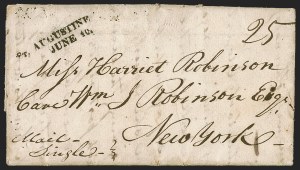 St. AUGUSTINE
JUNE 16.
25
Miss Harriet Robinson
Care Wm J Robinson Esqr.
New York
Mail
Single